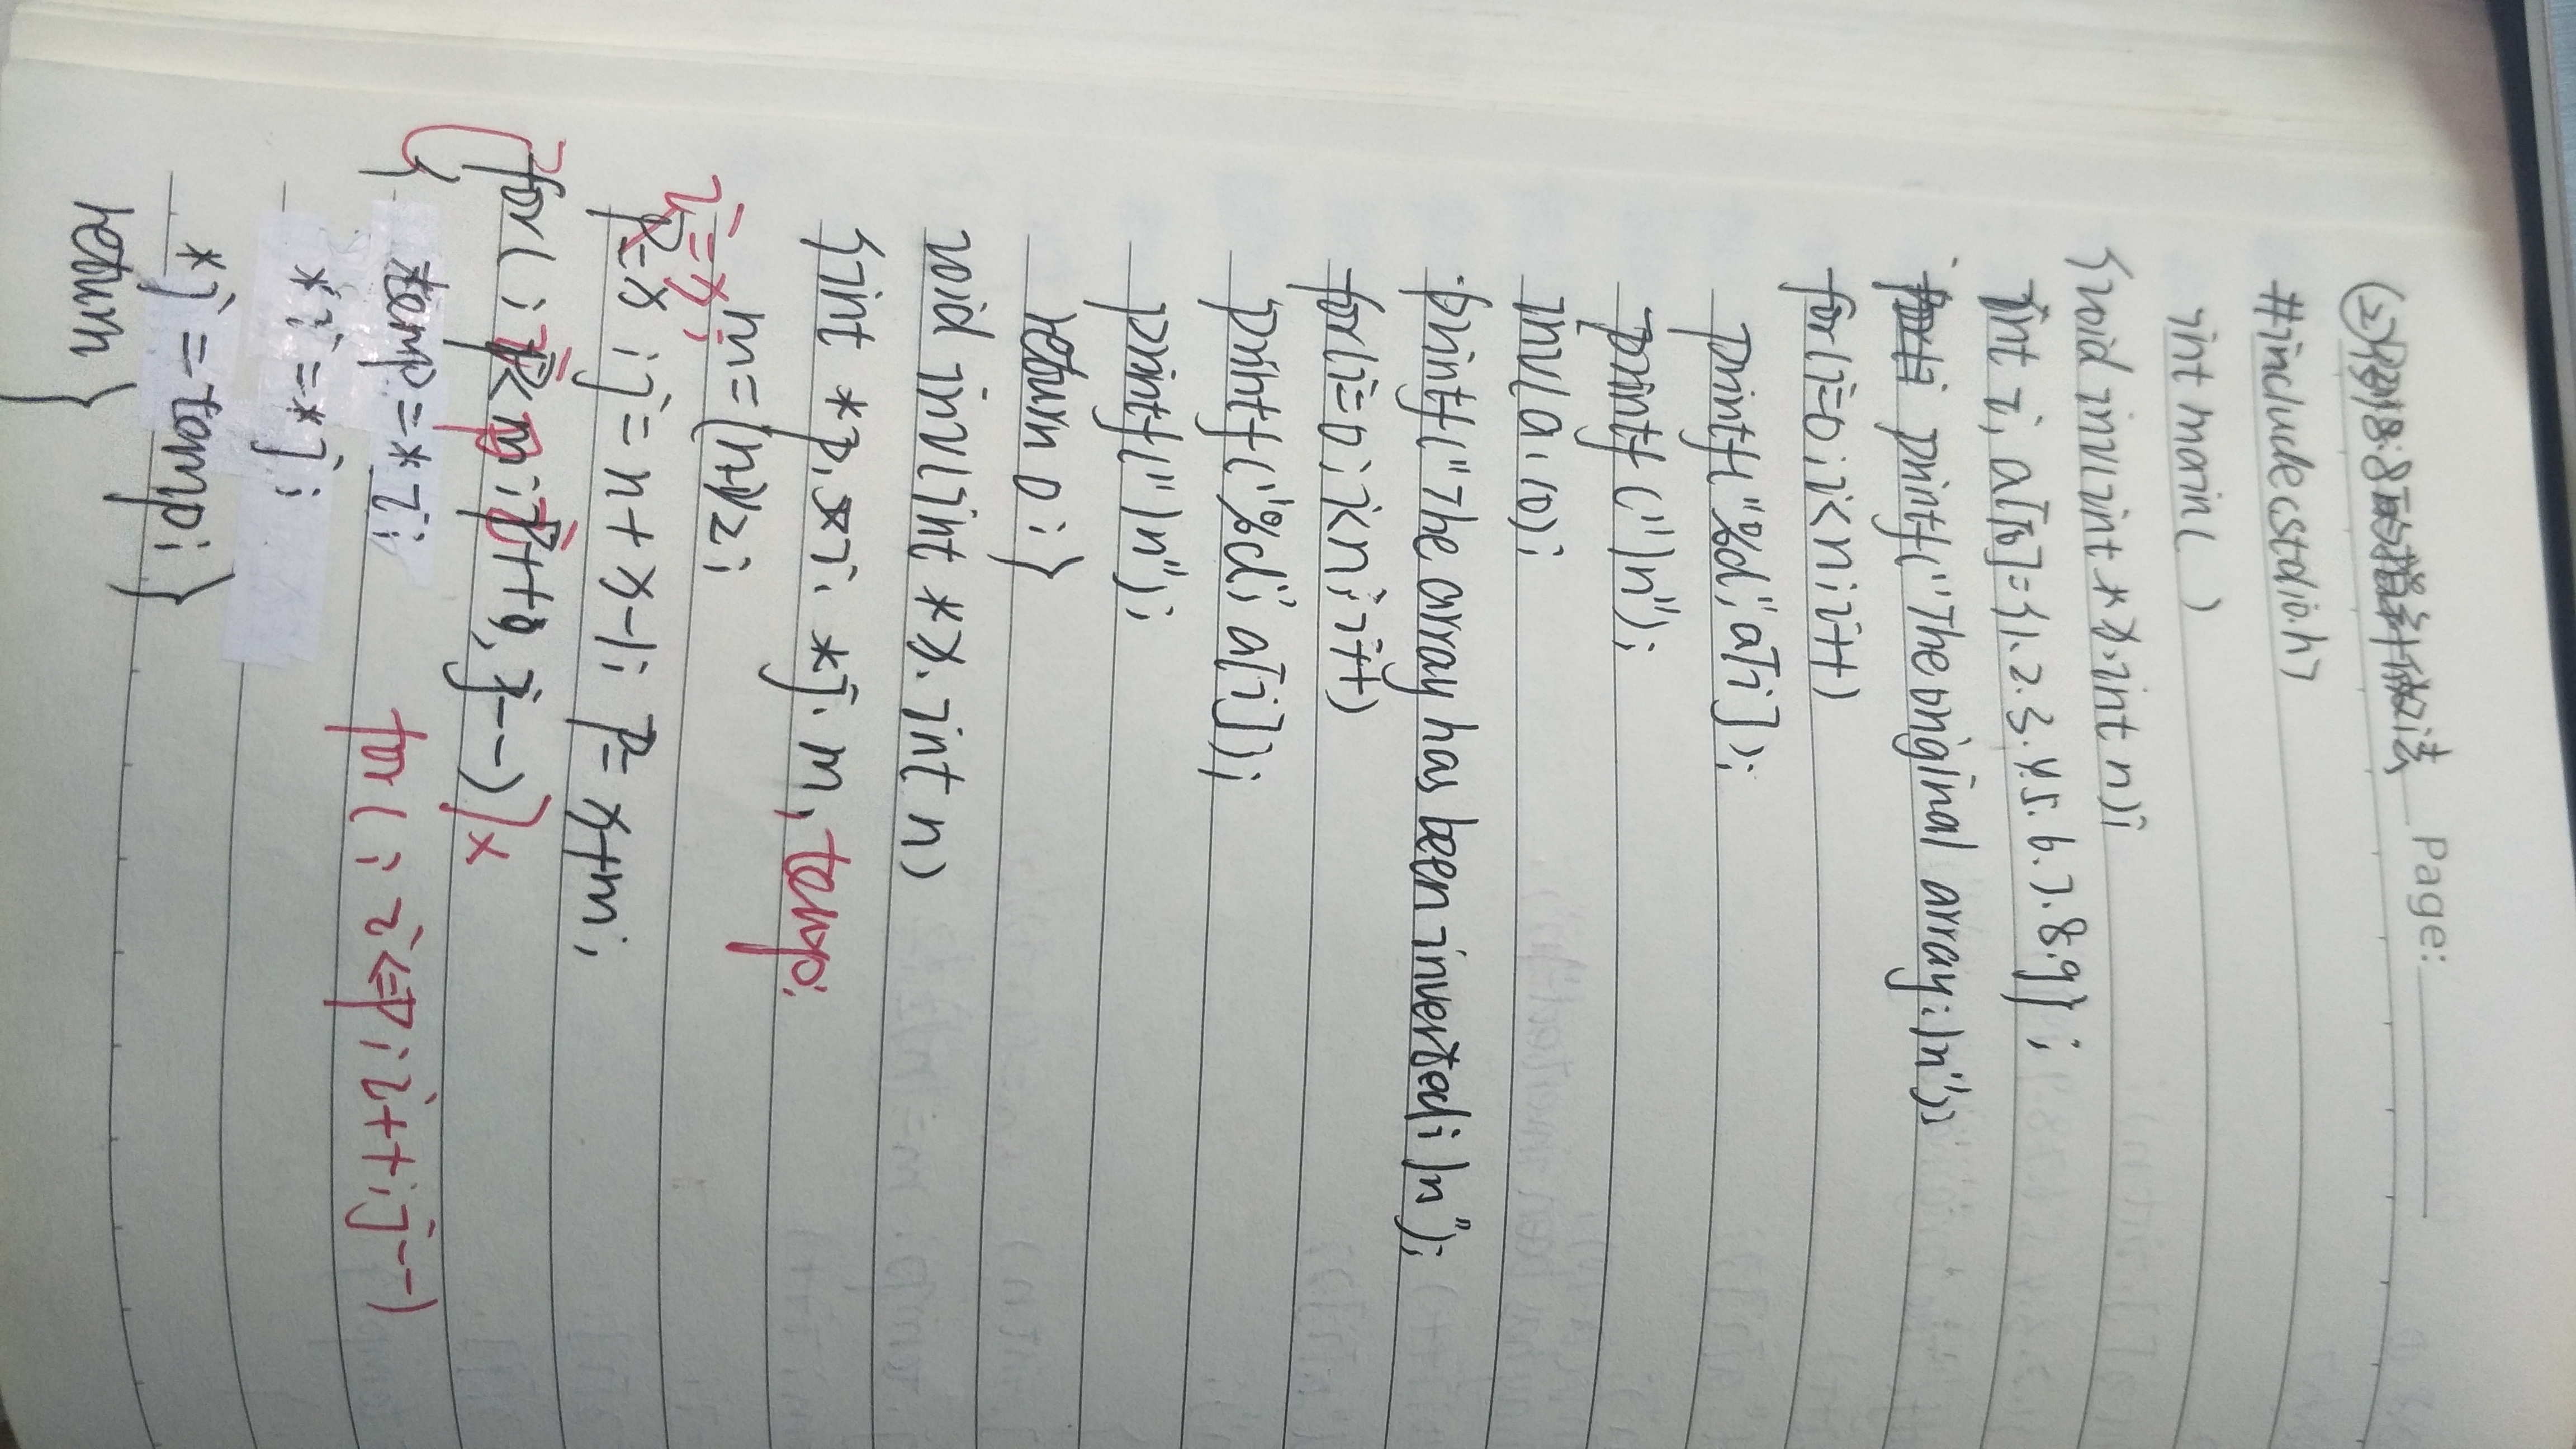 Page:
②例8.8的指针做法
#include<stdio.h>
int main( )
{void inv(int *x,int n);
int i, a[10]={1.2.3.4.5.6.7.8.9};
printf("The original array:\n");
for(i=0;i<n;i++)
printf("%d",a[i]);
printf("\n");
inv(a,10);
printf("The array has been inverted:\n");
for(i=0;i<n;i++)
printf("%d",a[i]);
printf("\n");
return 0;}
void inv(int *x, int n)
{int *p,*i, *j, m, temp;
m=(n-1)/2;
i=x;
p=x ;j=n+x-1; p=x+m;
for( ; i<p;i++, j--) ]x
{ temp=*i;
for( ; i<=p;i++;j--)
*i=*j;
*j=temp;}
return }